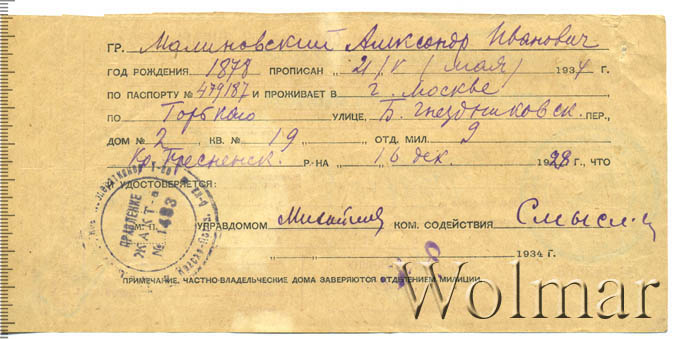 ГР. Малиновский Александр Иванович
ГОД РОЖДЕНИЯ 1878 ПРОПИСАН „ 21/V (мая) 1934 Г.
ПО ПАСПОРТУ № 479187 И ПРОЖИВАЕТ В г. Москве
ПО Горького УЛИЦЕ, Б. Гнездниковск. ПЕР.,
ДОМ № 2 КВ. № 19 „ ОТД. МИЛ. 9
Кр. Пресненск. Р-НА „ 16 дек. 1928 Г., ЧТО
УДОСТОВЕРЯЕТСЯ:
М. П. УПРАВДОМОМ КОМ. СОДЕЙСТВИЯ
„ „ 1934 Г.
ПРИМЕЧАНИЕ. ЧАСТНО-ВЛАДЕЛЬЧЕСКИЕ ДОМА ЗАВЕРЯЮТСЯ ОТДЕЛЕНИЕМ МИЛИЦИИ.
ПРАВЛЕНИЕ
ЖАКТ-а
№ 1483
Wolmar